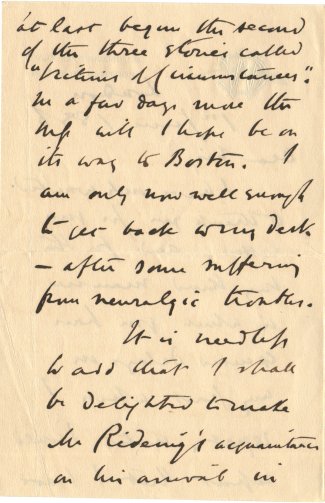 at last begun the second
of the three stories called
"Victims of Circumstances".
In a few days more the
MS will I hope be on
its way to Boston. I
am only now well enough
to get back to my desk
— after some suffering
from neuralgic troubles.
It is needless
to add that I shall
be delighted to make
Mr Rideing's acquaintance
on his arrival in